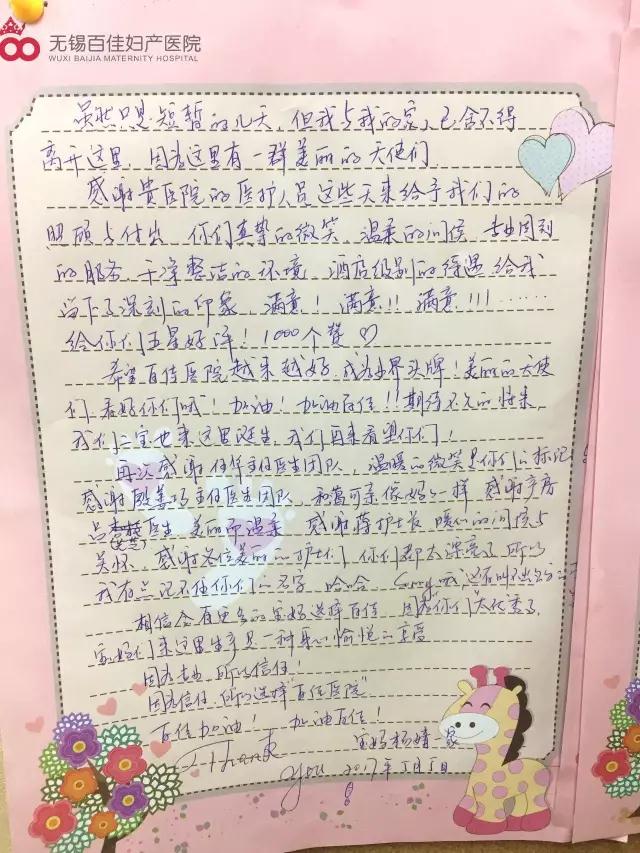 无锡百佳妇产医院
WUXI BAIJIA MATERNITY HOSPITAL
虽然只是短暂的几天，但我与我的家人已舍不得
离开这里，因为这里有一群美丽的天使们
感谢贵医院的医护人员这些天来给予我们的
照顾与付出，你们真挚的微笑，温柔的问侯，专业周到
的服务，干净整洁的环境，酒店级别的待遇给我
留下了深刻的印象，满意！满意！！满意！！！……
给你们五星好评！1000个赞♡
希望百佳医院越来越好，成为业界头牌！美丽的天使
们，看好你们哦！加油！加油百佳！！期待不久的将来，
我们二宝也来这里诞生，我们再来看望你们！
再次感谢 主任医生团队，温暖的微笑是你们的标记！
感谢殷 主任医生团队，和蔼可亲像妈妈一样，感谢产房
医生，美丽而温柔，感谢蒋护士长，暖心的问候与
关怀，感谢各位美丽的护士们，你们都太漂亮了，所以
我有点记不住你们的名字，哈哈，Sorry
相信会有更多的宝妈选择百佳，因为你们太优秀了，
宝妈们来这里生产是一种身心愉悦的享受
因为专业，所以信任！
因为信任，所以选择"百佳医院"
百佳加油！加油百佳！
宝妈杨婧一家
Thank
You 2017年5月5日
！